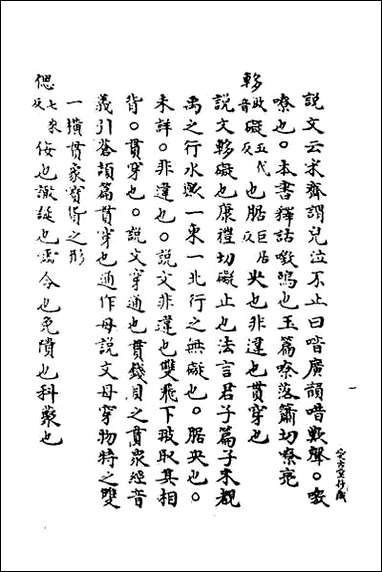 說文云宋齊謂兒泣不止曰喑廣韻喑歎聲。嗷
嘹也。本書釋詁嗷鳴也玉篇嘹落簫切嘹亮
軫政音反礙五代反也腒巨居反央也非違也貫穿也
說文軫礙也康禮切礙止也法言君子篇子未覩
禹之行水與一東一北行之無礙也。腒央也。
未詳。非違也。說文非違也雙飛下翄取其相
背。貫穿也。說文穿通也貫錢貝之貫眾經音
義引蒼頡篇貫穿也通作毋說文毋穿物持之雙
一橫貫象寶貨之形
偲七來反侮也譤諔也也令也免隤也科藂也